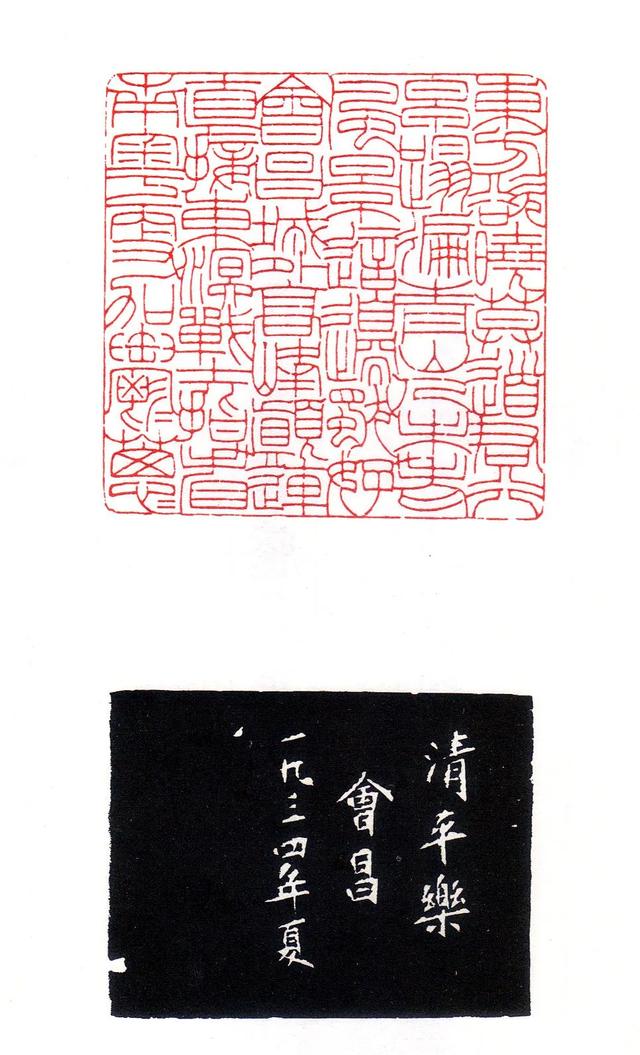 東方欲曉莫道君行
早蹋遍青山人未老
風景這邊獨好
會昌城外高峰顛連
直接東溟戰士指看
南粵更加鬱鬱葱葱
清平樂
會昌
一九三四年夏